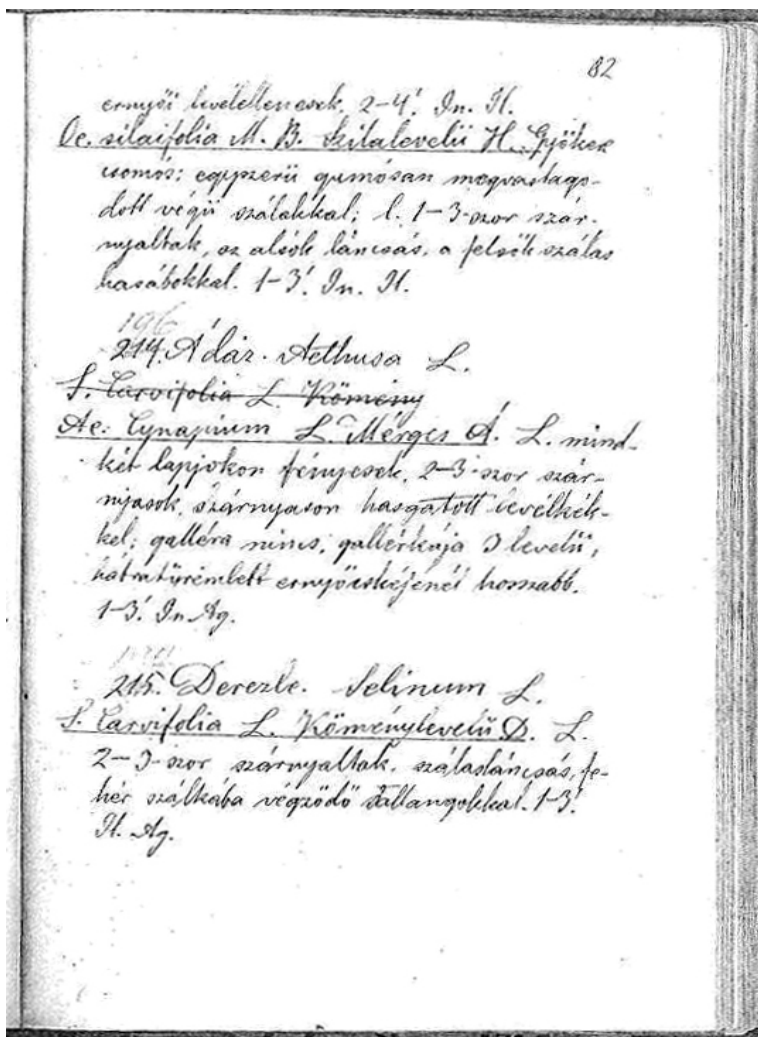 82
ernyői levélellenesek. 2-4'. Jn. Jl.
Oe. silaifolia M. B. Szilalevelü H. Gyöker
csomós; egyszerü gumósan megvastago-
dott végü szálakkal; l. 1-3-szor szár-
nyaltak, az alsók láncsás, a felsők szálas
hasábokkal. 1-3'. Jn. Jl.
196
214. Ádáz. Aethusa L.
S. Carvifolia L. Kömény
Ae. Cynapium L. Mérges Á. L. mind-
két lapjokon fényesek, 2-3-szor szár-
nyasok, szárnyason hasgatott levélkék-
kel; galléra nincs, gallérkája 3 levelü,
hátratüremlett ernyőcskéjénél hosszabb.
1-3'. Jn. Ag.
215. Derezle. Selinum L.
S. Carvifolia L. Köménylevelü D. L.
2-3-szor szárnyaltak, szálasláncsás, fe-
hér szálkába végződő sallangokkal. 1-3'.
Jl. Ag.